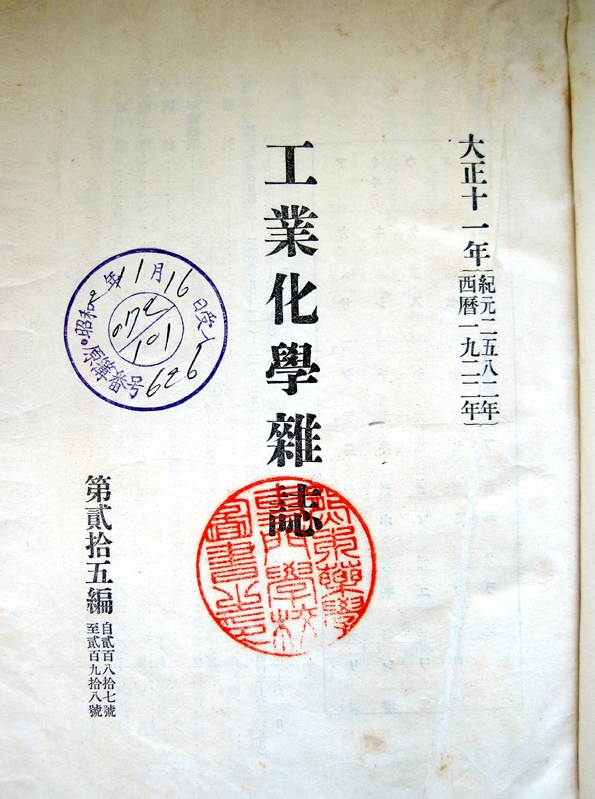 大正十一年(紀元二五八二年)(西暦一九二二年)
工業化學雜誌
第貳拾五編
自貳百八拾七號
至貳百九拾八號
昭和 年11月16日受入
072/101
原簿番号626
學校
圖書之